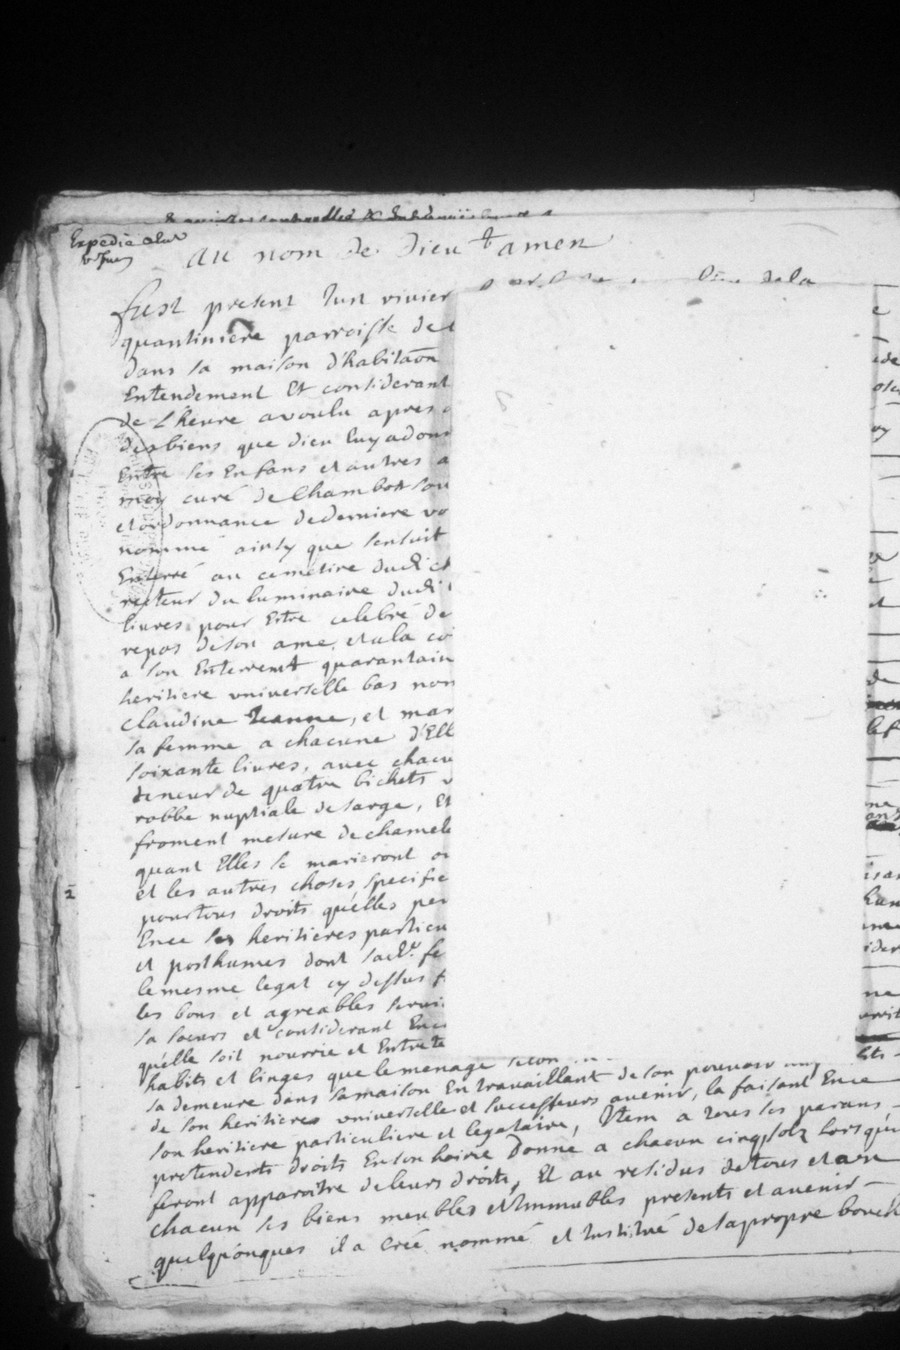 Expedié
au nom de Dieu † amen
fust present Just vivier
quantiniere parroisse de
dans sa maison d'habitaōn
Entendement Et considerant
de L'heure a voulu apres
des biens que dieu luy a donn
Entre ses Enfans et autres a
moy curé de Chambost sou
et ordonnance de derniere vo
nommé ainsy que sensuit
Enterré au cemetire dudt
recteur du luminaire dudt
livres pour Estre celebré de
repos de son ame, et a la
a son Enterremt quarantain
heritiere universelle bas nom
Claudine Jeanne, et mar
sa femme a chacune d'Ell
soixante livres, avec chacu
teneur de quatre bichets
robbe nuptiale de sarge, Et
froment mesure de chamele
quant Elles se marieront
et les autres choses specifie
pour tous droits quélles
Ence ses heritieres particu
et posthumes dont sade fe
le mesme legat cy dessus
les bons et agreables servi
sa soeurs et considerant Enc
quélle soit nourrie et Entrete
habits et linges que le menage selon
sa demeure dans sa maison En travaillant de son pouvoir
de son heritieres universelle et successeurs avenir, la faisant Ence
son heritiere particuliere et legataire, Item a tous ses parans
pretendents droits En son hoirie donne a chacun cinq solz lors qu
feront apparoître de leurs droits, Et au residus de tous et
chacun ses biens meubles et Immeubles presents et avenir
quelqu'onques il a Creé nommé et Institué de sa propre bouch